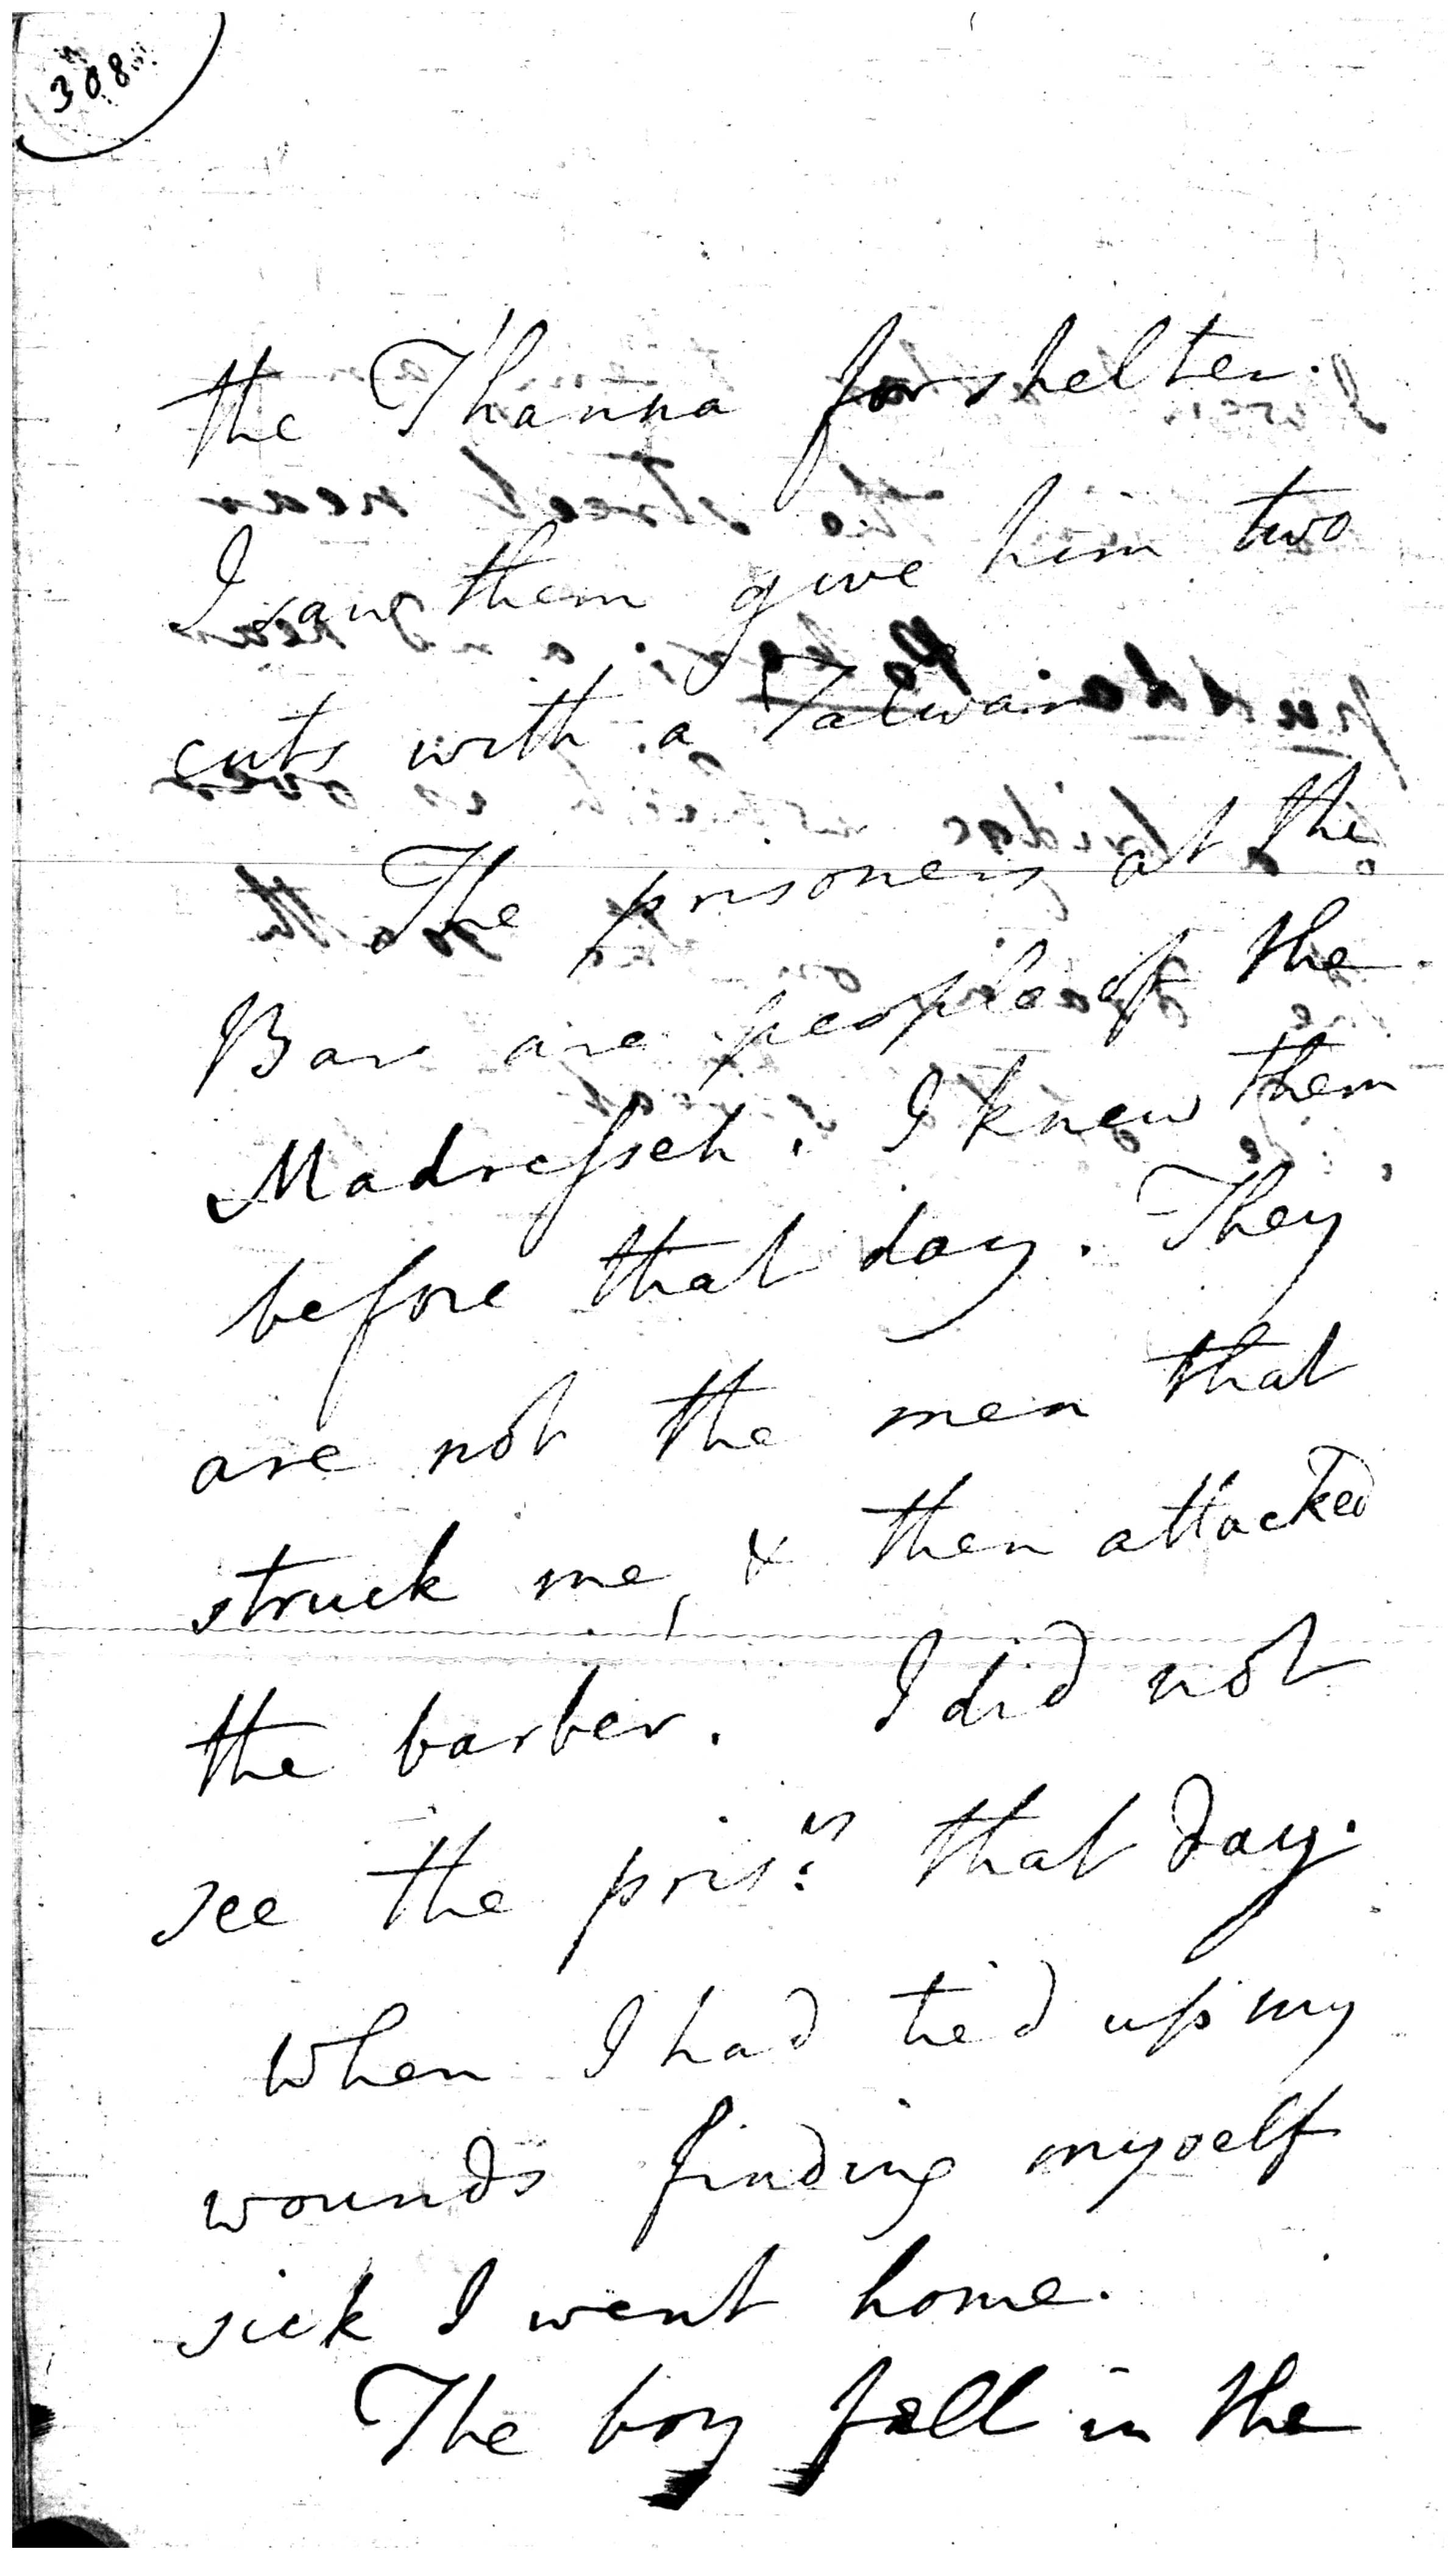 308
the Thanna for shelter.
I saw them give him two
cuts with a Talwar
The prisoners at the
Bar are people of the
Madrefseh. I knew them
before that day. They
are not the men that
struck me, & then attacked
the barber. I did not
see the pris:rs that day.
When I had tied up my
wounds finding myself
sick I went home.
The boy fell in the